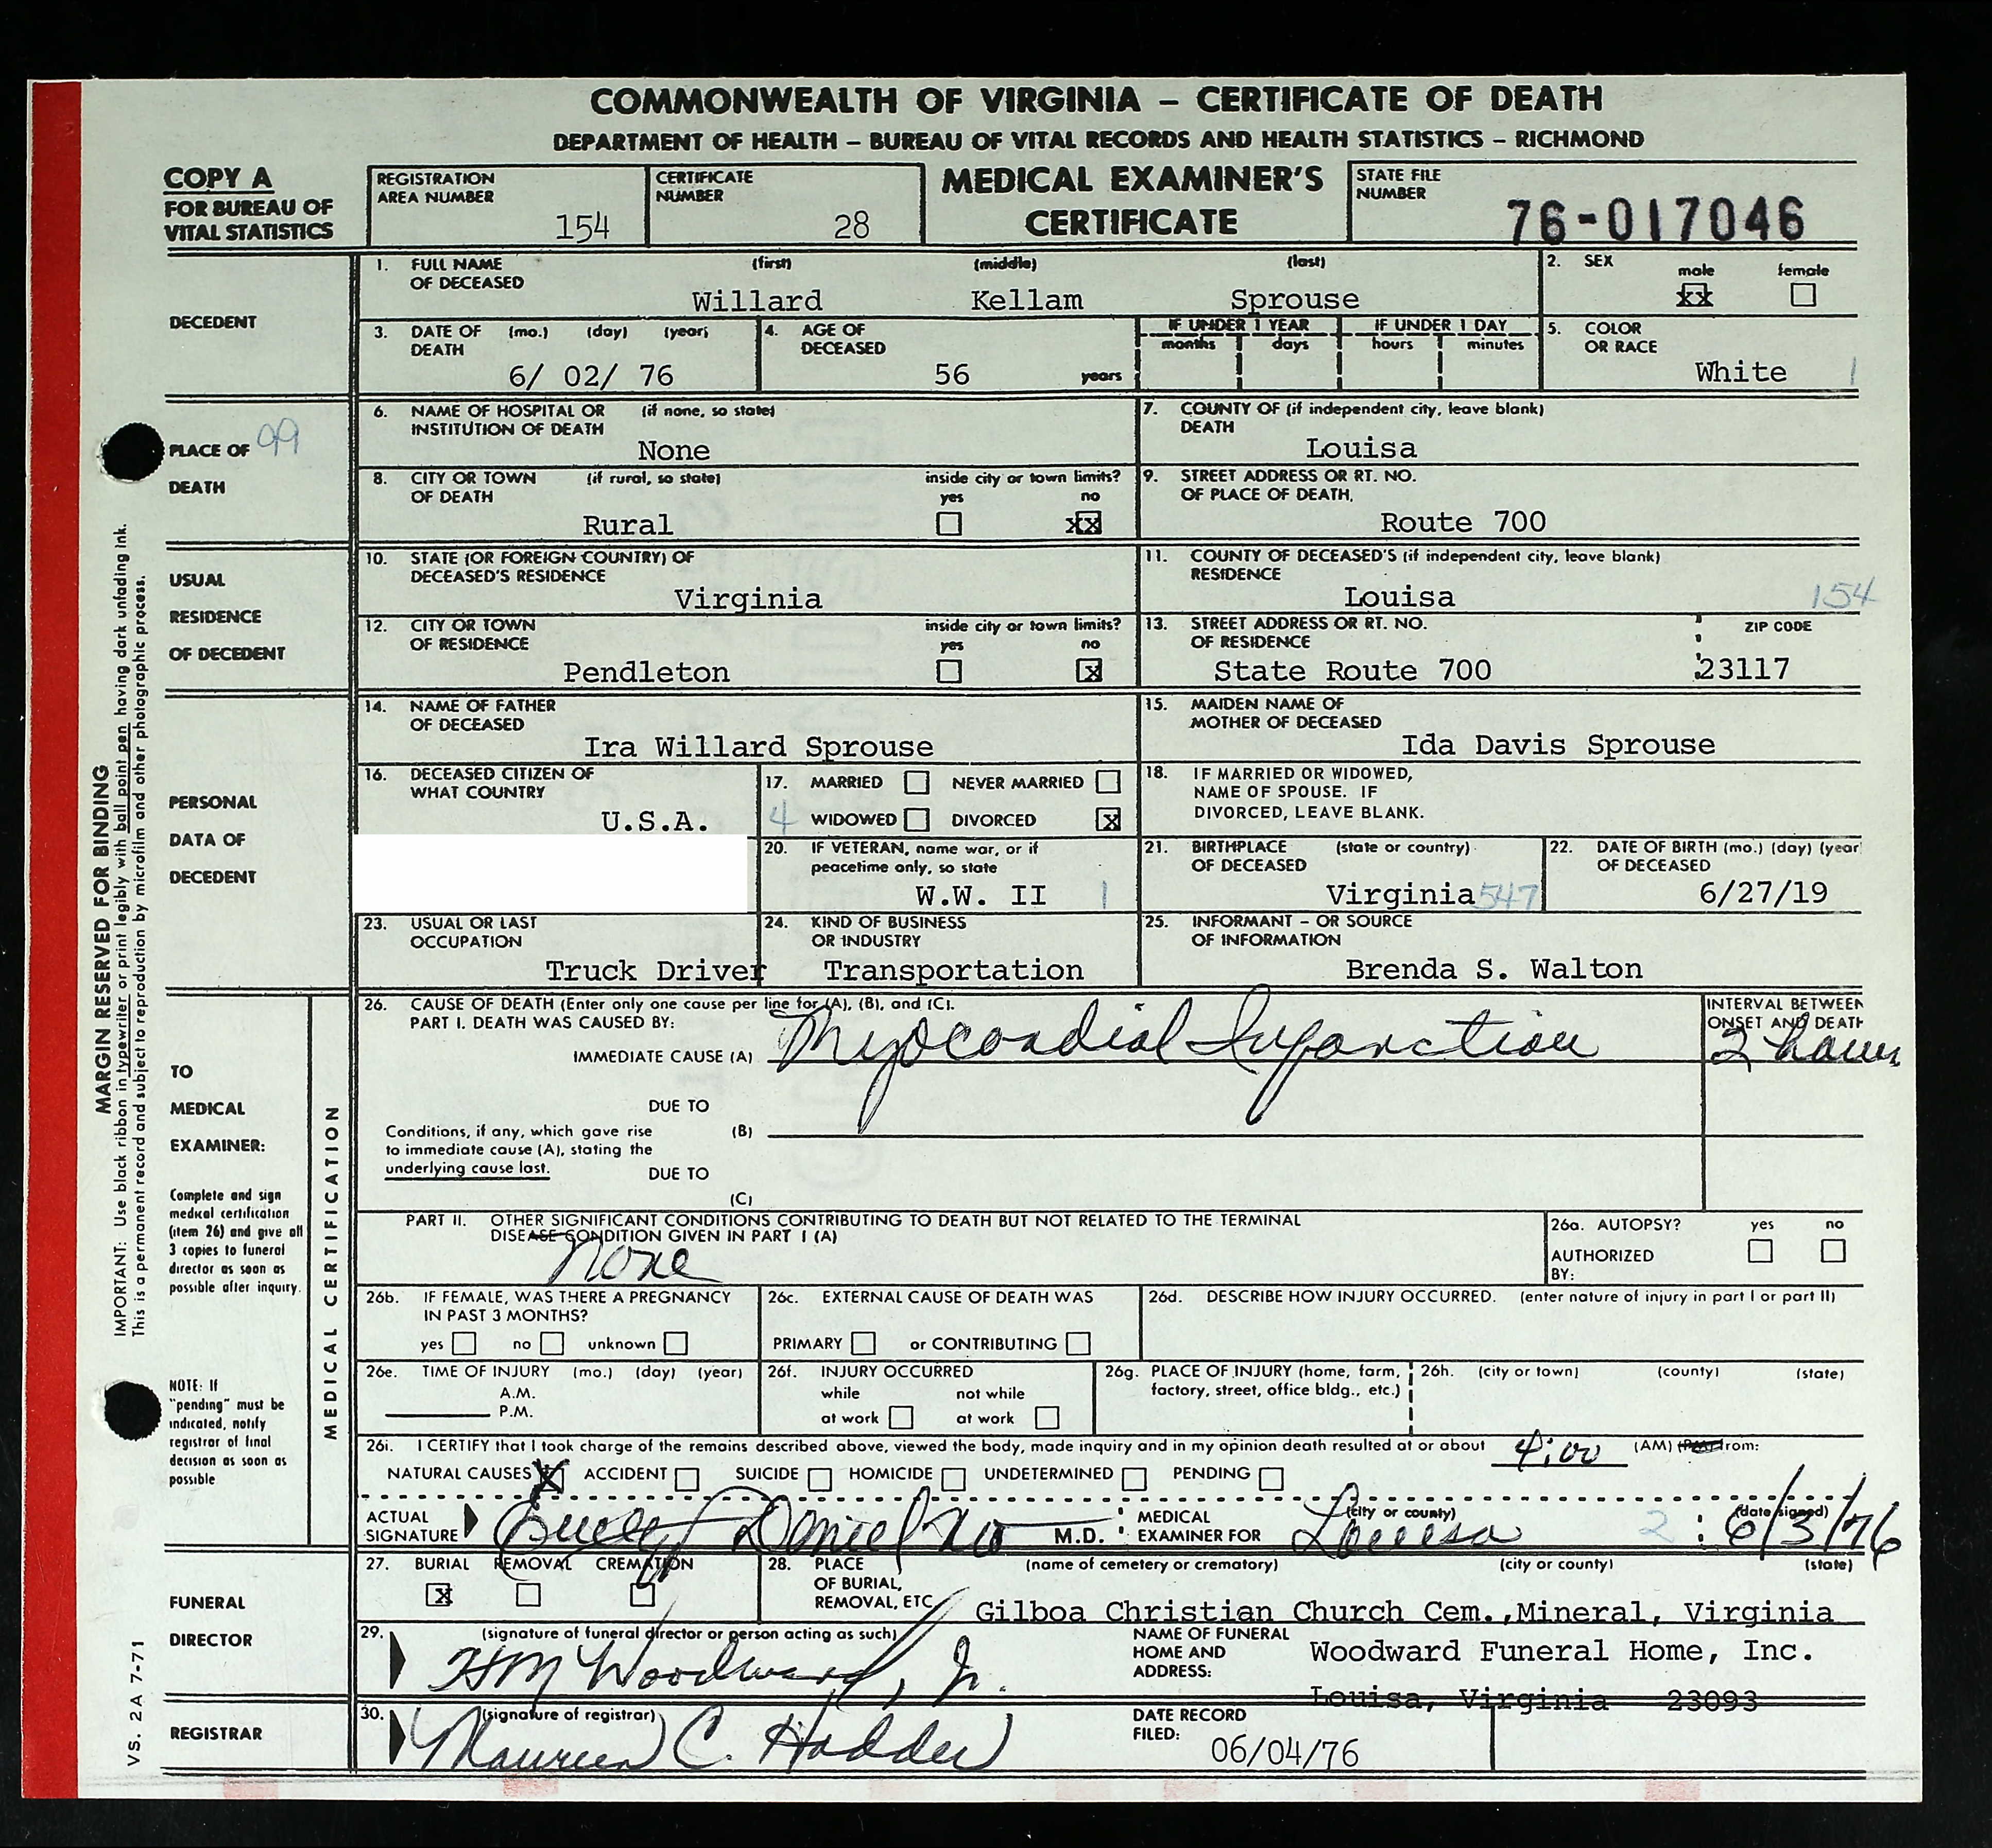 COMMONWEALTH OF VIRGINIA – CERTIFICATE OF DEATH
DEPARTMENT OF HEALTH – BUREAU OF VITAL RECORDS AND HEALTH STATISTICS – RICHMOND
COPY A
FOR BUREAU OF
VITAL STATISTICS
REGISTRATION
AREA NUMBER
154
CERTIFICATE
NUMBER
28
MEDICAL EXAMINER'S
CERTIFICATE
STATE FILE
NUMBER
76-017046
DECEDENT
1. FULL NAME (first) (middle) (last)
OF DECEASED
Willard Kellam Sprouse
2. SEX
male female
xx
3. DATE OF (mo.) (day) (year)
DEATH
6/ 02/ 76
4. AGE OF
DECEASED
56 years
IF UNDER 1 YEAR
months days
IF UNDER 1 DAY
hours minutes
5. COLOR
OR RACE
White 1
PLACE OF 99
DEATH
6. NAME OF HOSPITAL OR (if none, so state)
INSTITUTION OF DEATH
None
7. COUNTY OF (if independent city, leave blank)
DEATH
Louisa
8. CITY OR TOWN (if rural, so state) inside city or town limits?
OF DEATH yes no
Rural xx
9. STREET ADDRESS OR RT. NO.
OF PLACE OF DEATH,
Route 700
USUAL
RESIDENCE
OF DECEDENT
10. STATE (OR FOREIGN COUNTRY) OF
DECEASED'S RESIDENCE
Virginia
11. COUNTY OF DECEASED'S (if independent city, leave blank)
RESIDENCE
Louisa 154
12. CITY OR TOWN inside city or town limits?
OF RESIDENCE yes no
Pendleton x
13. STREET ADDRESS OR RT. NO. ZIP CODE
OF RESIDENCE
State Route 700 23117
PERSONAL
DATA OF
DECEDENT
14. NAME OF FATHER
OF DECEASED
Ira Willard Sprouse
15. MAIDEN NAME OF
MOTHER OF DECEASED
Ida Davis Sprouse
16. DECEASED CITIZEN OF
WHAT COUNTRY
U.S.A.
17. MARRIED NEVER MARRIED
4 WIDOWED DIVORCED x
18. IF MARRIED OR WIDOWED,
NAME OF SPOUSE. IF
DIVORCED, LEAVE BLANK.
20. IF VETERAN, name war, or if
peacetime only, so state
W.W. II 1
21. BIRTHPLACE (state or country)
OF DECEASED
Virginia 547
22. DATE OF BIRTH (mo.) (day) (year
OF DECEASED
6/27/19
23. USUAL OR LAST
OCCUPATION
Truck Driver
24. KIND OF BUSINESS
OR INDUSTRY
Transportation
25. INFORMANT – OR SOURCE
OF INFORMATION
Brenda S. Walton
TO
MEDICAL
EXAMINER:
Complete and sign
medical certification
(item 26) and give all
3 copies to funeral
director as soon as
possible after inquiry.
NOTE: If
"pending" must be
indicated, notify
registrar of final
decision as soon as
possible
MEDICAL CERTIFICATION
26. CAUSE OF DEATH (Enter only one cause per line for (A), (B), and (C).
PART I. DEATH WAS CAUSED BY:
IMMEDIATE CAUSE (A) Myocardial Infarction
INTERVAL BETWEEN
ONSET AND DEATH
2 hours
DUE TO
Conditions, if any, which gave rise (B)
to immediate cause (A), stating the
underlying cause last.
DUE TO
(C)
PART II. OTHER SIGNIFICANT CONDITIONS CONTRIBUTING TO DEATH BUT NOT RELATED TO THE TERMINAL
DISEASE CONDITION GIVEN IN PART I (A)
none
26a. AUTOPSY? yes no
AUTHORIZED
BY:
26b. IF FEMALE, WAS THERE A PREGNANCY
IN PAST 3 MONTHS?
yes no unknown
26c. EXTERNAL CAUSE OF DEATH WAS
PRIMARY or CONTRIBUTING
26d. DESCRIBE HOW INJURY OCCURRED. (enter nature of injury in part I or part II)
26e. TIME OF INJURY (mo.) (day) (year)
A.M.
P.M.
26f. INJURY OCCURRED
while not while
at work at work
26g. PLACE OF INJURY (home, farm,
factory, street, office bldg., etc.)
26h. (city or town) (county) (state)
26i. I CERTIFY that I took charge of the remains described above, viewed the body, made inquiry and in my opinion death resulted at or about 4:00 (AM) (PM) from:
NATURAL CAUSES X ACCIDENT SUICIDE HOMICIDE UNDETERMINED PENDING
ACTUAL
SIGNATURE
Daniel M.D.
MEDICAL (city or county) (date signed)
EXAMINER FOR Louisa 2 6/3/76
FUNERAL
DIRECTOR
27. BURIAL REMOVAL CREMATION
x
28. PLACE (name of cemetery or crematory) (city or county) (state)
OF BURIAL,
REMOVAL, ETC.
Gilboa Christian Church Cem.,Mineral, Virginia
29. (signature of funeral director or person acting as such)
HM Woodward, Jr.
NAME OF FUNERAL
HOME AND
ADDRESS:
Woodward Funeral Home, Inc.
Louisa, Virginia 23093
REGISTRAR
30. (signature of registrar)
Maureen C. Hadder
DATE RECORD
FILED:
06/04/76
MARGIN RESERVED FOR BINDING
IMPORTANT: Use black ribbon in typewriter or print legibly with ball point pen having dark unfading ink.
This is a permanent record and subject to reproduction by microfilm and other photographic process.
VS. 2A 7-71